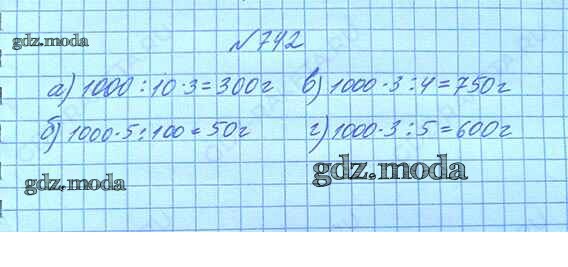 gdz.moda
№742
а) 1000:10·3=300г в) 1000·3:4=750г
б) 1000·5:100=50г г) 1000·3:5=600г
gdz.moda gdz.moda